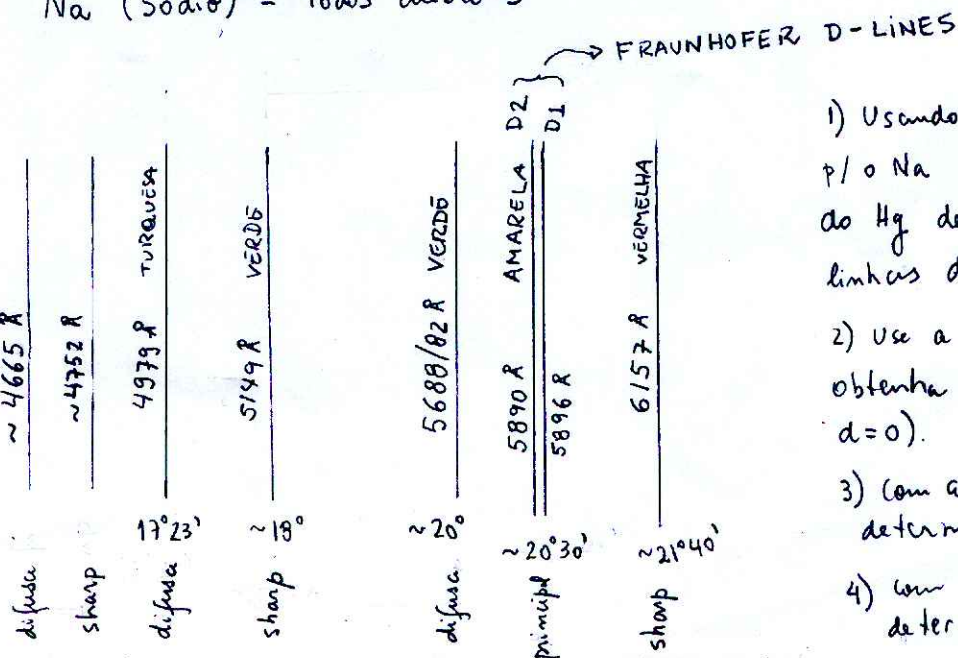 Na (Sódio) - Todos
→ FRAUNHOFER D-LINES
D2
D1
~ 4665 Å
~4752 Å
4979 Å TURQUESA
5149 Å VERDE
5688/82 Å VERDE
5890 Å AMARELA
5896 Å
6157 Å VERMELHA
17°23'
~19°
~20°
~20°30'
~21°40'
difusa
sharp
difusa
sharp
difusa
principal
sharp
1) Usando
p/ o Na
do Hg de
linhas d
2) Use a
obtenha
d=0).
3) Com a
determ
4) Com
deter